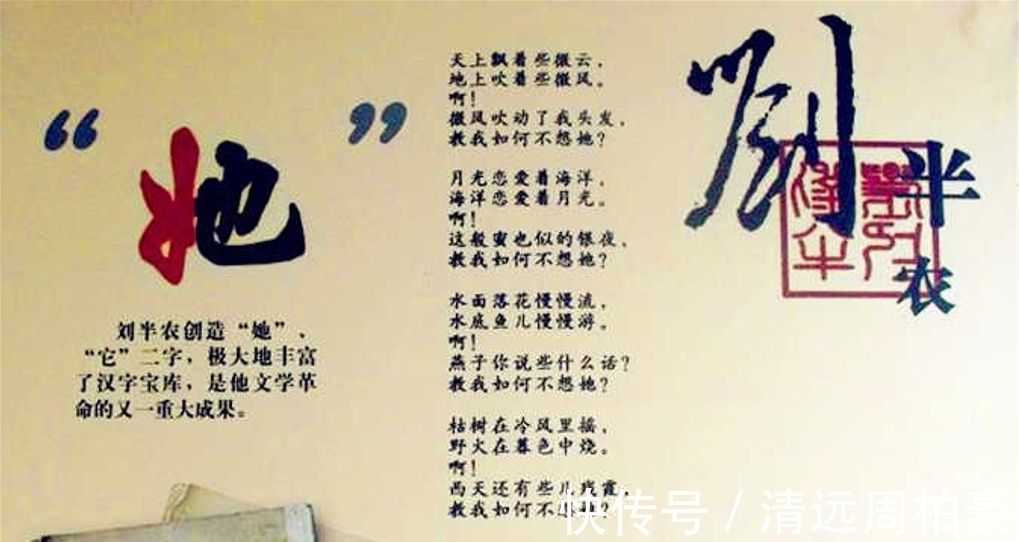 “她”
刘半农创造“她”、
“它”二字，极大地丰富
了汉字宝库，是他文学革
命的又一重大成果。
天上飘着些微云，
地上吹着些微风。
啊！
微风吹动了我头发，
教我如何不想她？
月光恋爱着海洋，
海洋恋爱着月光。
啊！
这般蜜也似的银夜，
教我如何不想她？
水面落花慢慢流，
水底鱼儿慢慢游。
啊！
燕子你说些什么话？
教我如何不想她？
枯树在冷风里摇，
野火在暮色中烧。
啊！
西天还有些儿残霞，
教我如何不想她？
刘半农
快传号 / 清远周柏豪